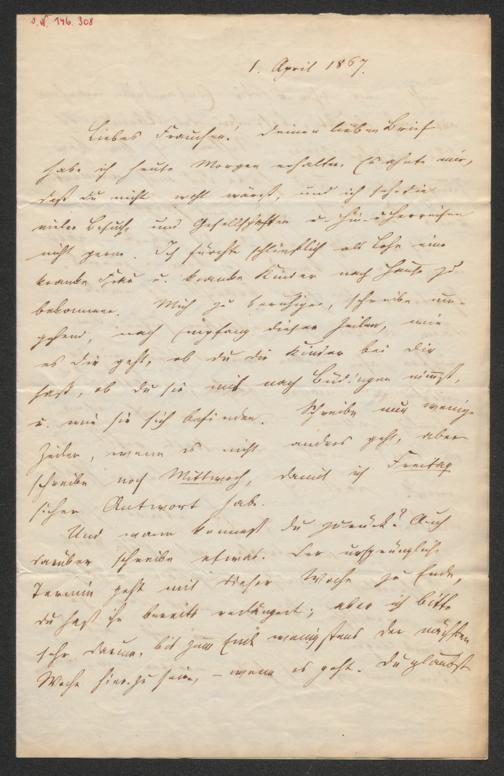 J. N. 146.308
1. April 1867.
Liebes Frauchen! Deinen lieben Brief
habe ich heute Morgen erhalten. Es ahnte mir,
daß du nicht wohl wärest, und ich sehe die
vielen Besuche und Gesellschaften u. Hin- u. Herreisen
nicht gern. Ich fürchte schließlich als Ende eine
kranke Frau u. kranke Kinder nach Hause zu
bekommen. Mich zu beruhigen, schreibe um-
gehend, nach Empfang dieser Zeilen, wie
es dir geht, ob du die Kinder bei dir
hast, ob du sie mit nach Büdingen nimmst,
u. wie sie sich befinden. Schreibe nur wenige
Zeilen, wenn es nicht anders geht, aber
schreibe noch Mittwoch, damit ich Freitag
sicher Antwort habe.
Und wann kommst du zurück? Auch
darüber schreibe etwas. Der ursprüngliche
Termin geht mit dieser Woche zu Ende,
du hast ihn bereits verlängert; aber ich bitte
sehr darum, bis zum Ende wenigstens der nächsten
Woche hier zu sein, – wenn es geht. Du glaubst